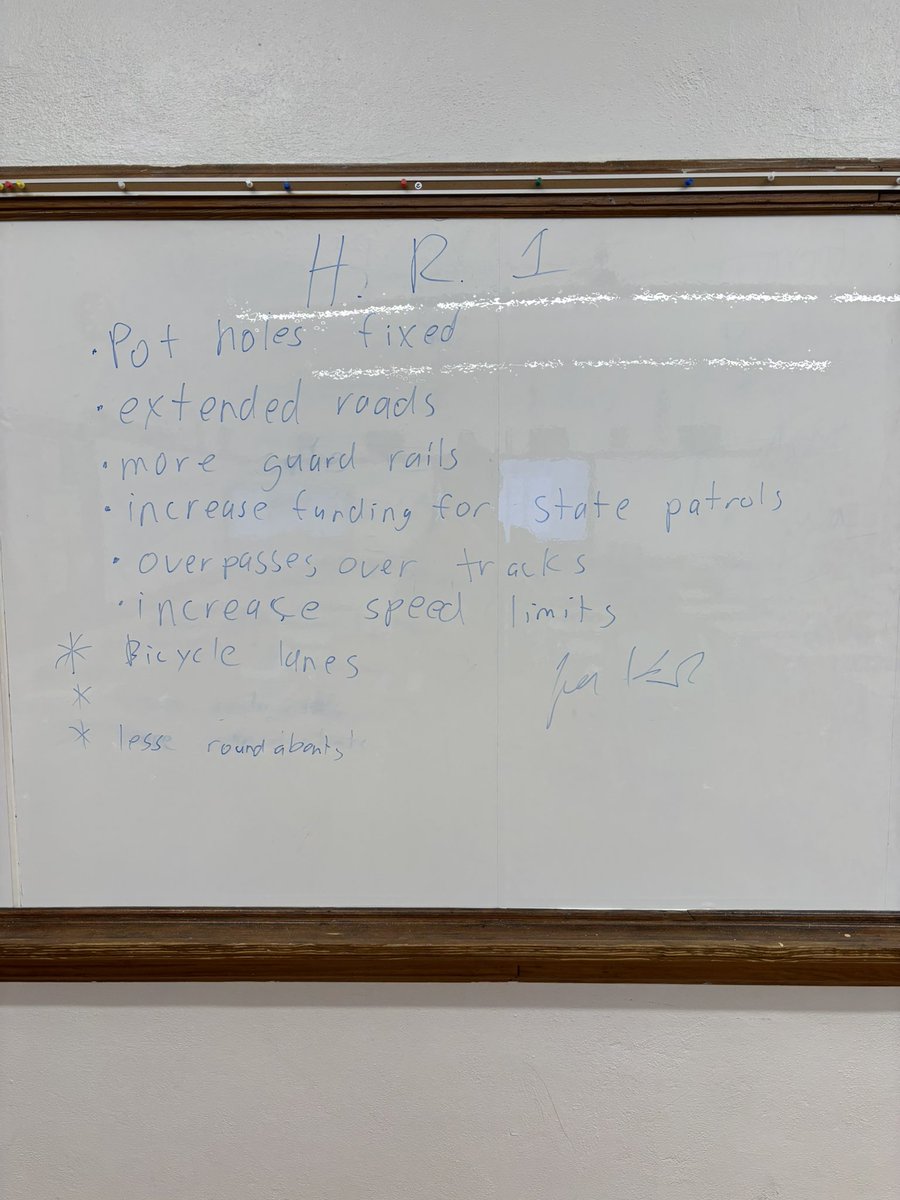 H. R. 1
• Pot holes fixed
• extended roads
• more guard rails
• increase funding for state patrols
• overpasses over tracks
• increase speed limits
* Bicycle lanes
*
* less roundabouts